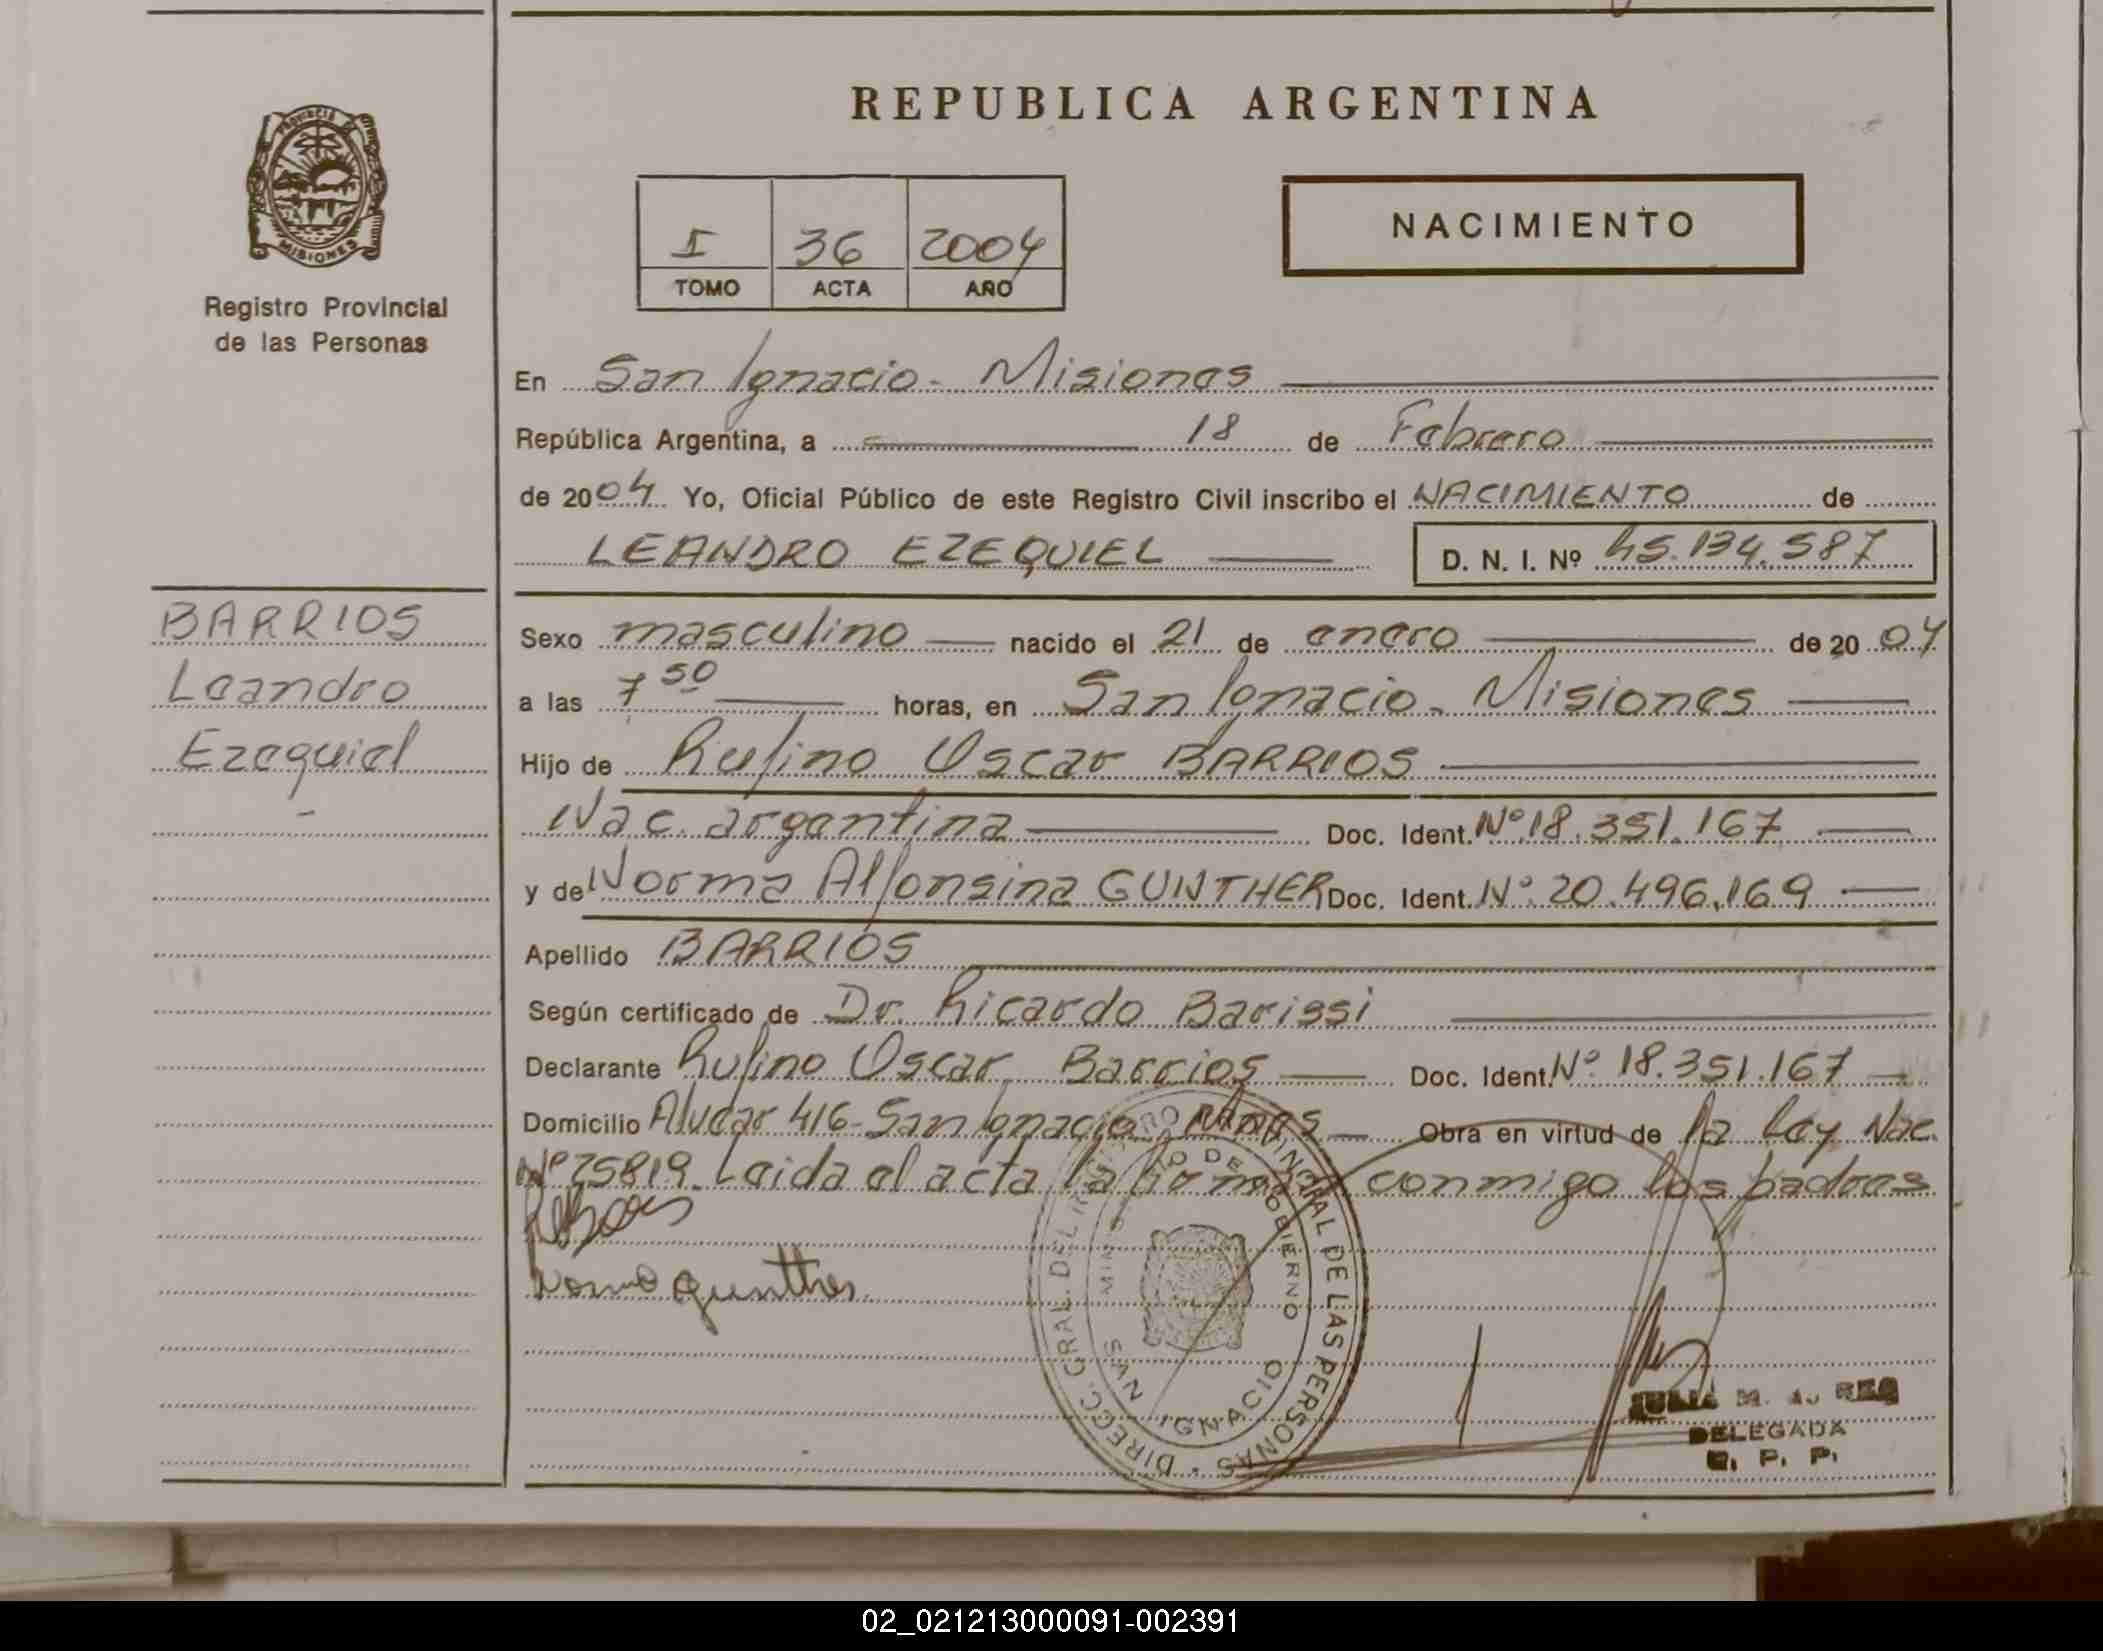 REPUBLICA ARGENTINA
PROVINCIA DE MISIONES
Registro Provincial
de las Personas
I 36 2004
TOMO ACTA AÑO
NACIMIENTO
En San Ignacio - Misiones
República Argentina, a 18 de Febrero
de 2004 Yo, Oficial Público de este Registro Civil inscribo el NACIMIENTO de
LEANDRO EZEQUIEL D. N. I. Nº 45.134.587
BARRIOS
Leandro
Ezequiel
-
Sexo masculino nacido el 21 de enero de 2004
a las 7 50 horas, en San Ignacio - Misiones
Hijo de Rufino Oscar BARRIOS
Nac. argentina Doc. Ident. Nº 18.351.167
y de Norma Alfonsina GUNTHER Doc. Ident. Nº 20.496.169
Apellido BARRIOS
Según certificado de Dr. Ricardo Barissi
Declarante Rufino Oscar Barrios Doc. Ident. Nº 18.351.167
Domicilio Alvear 416 - San Ignacio Mnes Obra en virtud de la Ley Nac.
Nº 25819. Leida el acta la firman conmigo los padres
Norma gunther
DIRECC. GRAL. DEL REGISTRO PROVINCIAL DE LAS PERSONAS
MINISTERIO DE GOBIERNO
SAN IGNACIO
JULIA M. A. REQ
DELEGADA
R. P. P.
02_021213000091-002391